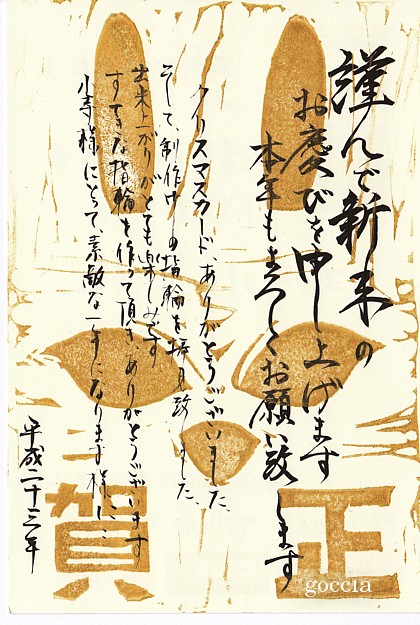 謹んで新年の
お慶びを申し上げます
本年もよろしくお願い致します
クリスマスカード、ありがとうございました、
そして、制作中の指輪を拝見致しました、
出来上がりがとても楽しみです
すてきな指輪を作って頂き、ありがとうございます
様にとって、素敵な一年になります様に…
平成二十三年
賀正
goccia